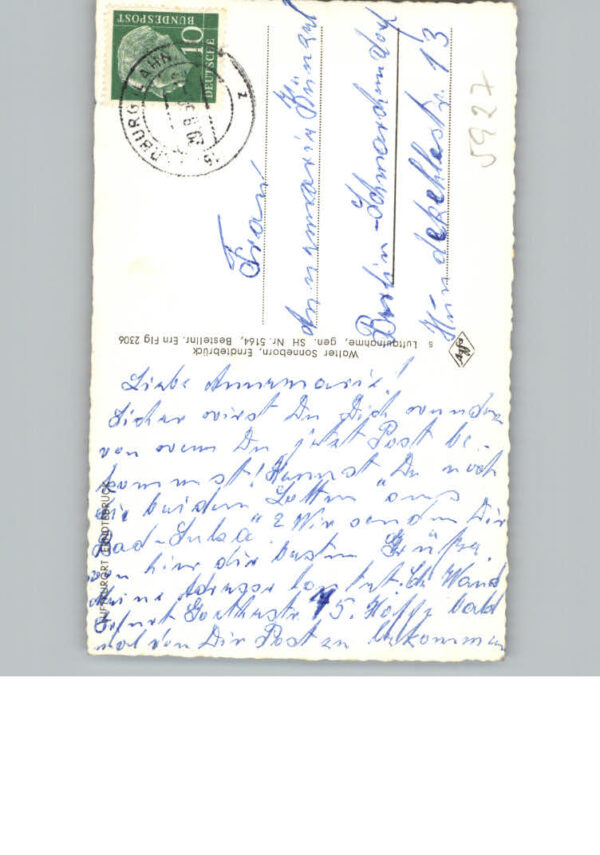 Liebe Annemarie!
Sicher wirst Du Dich wundern
von wem Du jetzt Post be-
kommst! Kennst "Du noch
die beiden Lotten aus
Bad-Sulza"? Wir senden Dir
von hier die besten Grüße.
Meine Adresse lautet: Ch. Wand
Erfurt Goethestr. 15. Hoffe bald
mal von Dir Post zu bekommen
LUFTKURORT ERNDTEBRÜCK
Walter Sonneborn, Erndtebrück
s Luftaufnahme, gen. SH Nr. 5164, Bestellnr. Ern Flg 2306
Frau
Annemarie
Berlin-Schmargendorf
Hundekehlestr. 13
5927
10
DEUTSCHE
BUNDESPOST